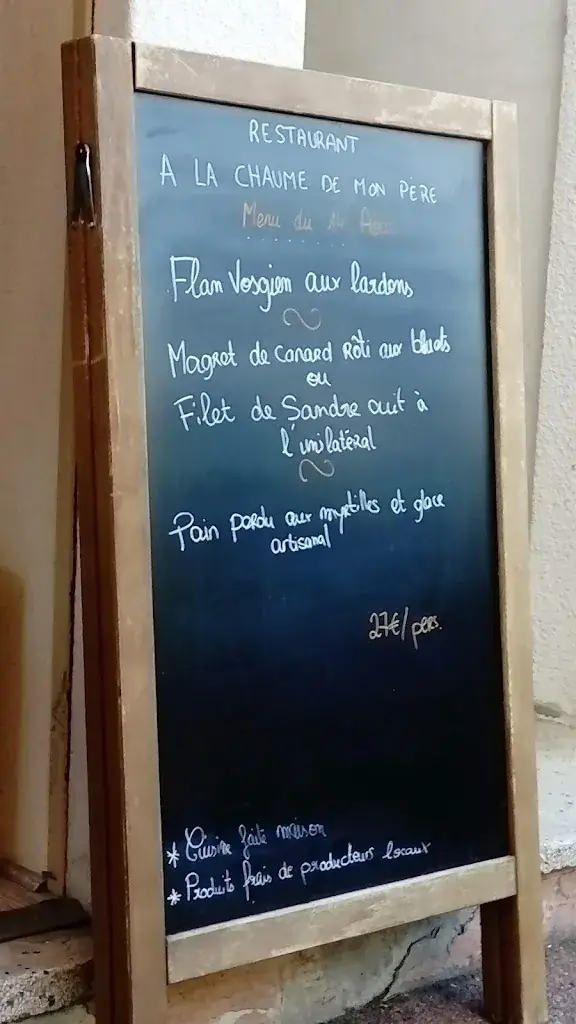 RESTAURANT
A LA CHAUME DE MON PÈRE
Menu du 14 Août
Flan Vosgien aux lardons
Magret de canard Rôti aux bluets
ou
Filet de Sandre cuit à
l'unilatéral
Pain perdu aux myrtilles et glace
artisanal
27€/pers.
* Cuisine faite maison
* Produits frais de producteurs locaux